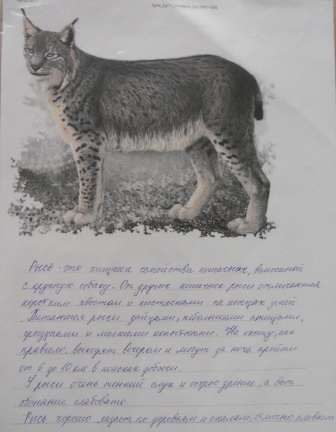 Рысь - это хищник семейства кошачьих, величиной
с крупную собаку. От других кошачьих рыси отличаются
коротким хвостом и кисточками на концах ушей
Питаются рыси зайцами, небольшими птицами,
грызунами и мелкими копытными. На охоту, как
правило, выходят вечером и могут за ночь пройти
от 6 до 10 км в поисках добычи.
У рыси очень тонкий слух и острое зрение, а вот
обоняние слабовато.
Рысь хорошо лазает по деревьям и скалам, отлично плавает